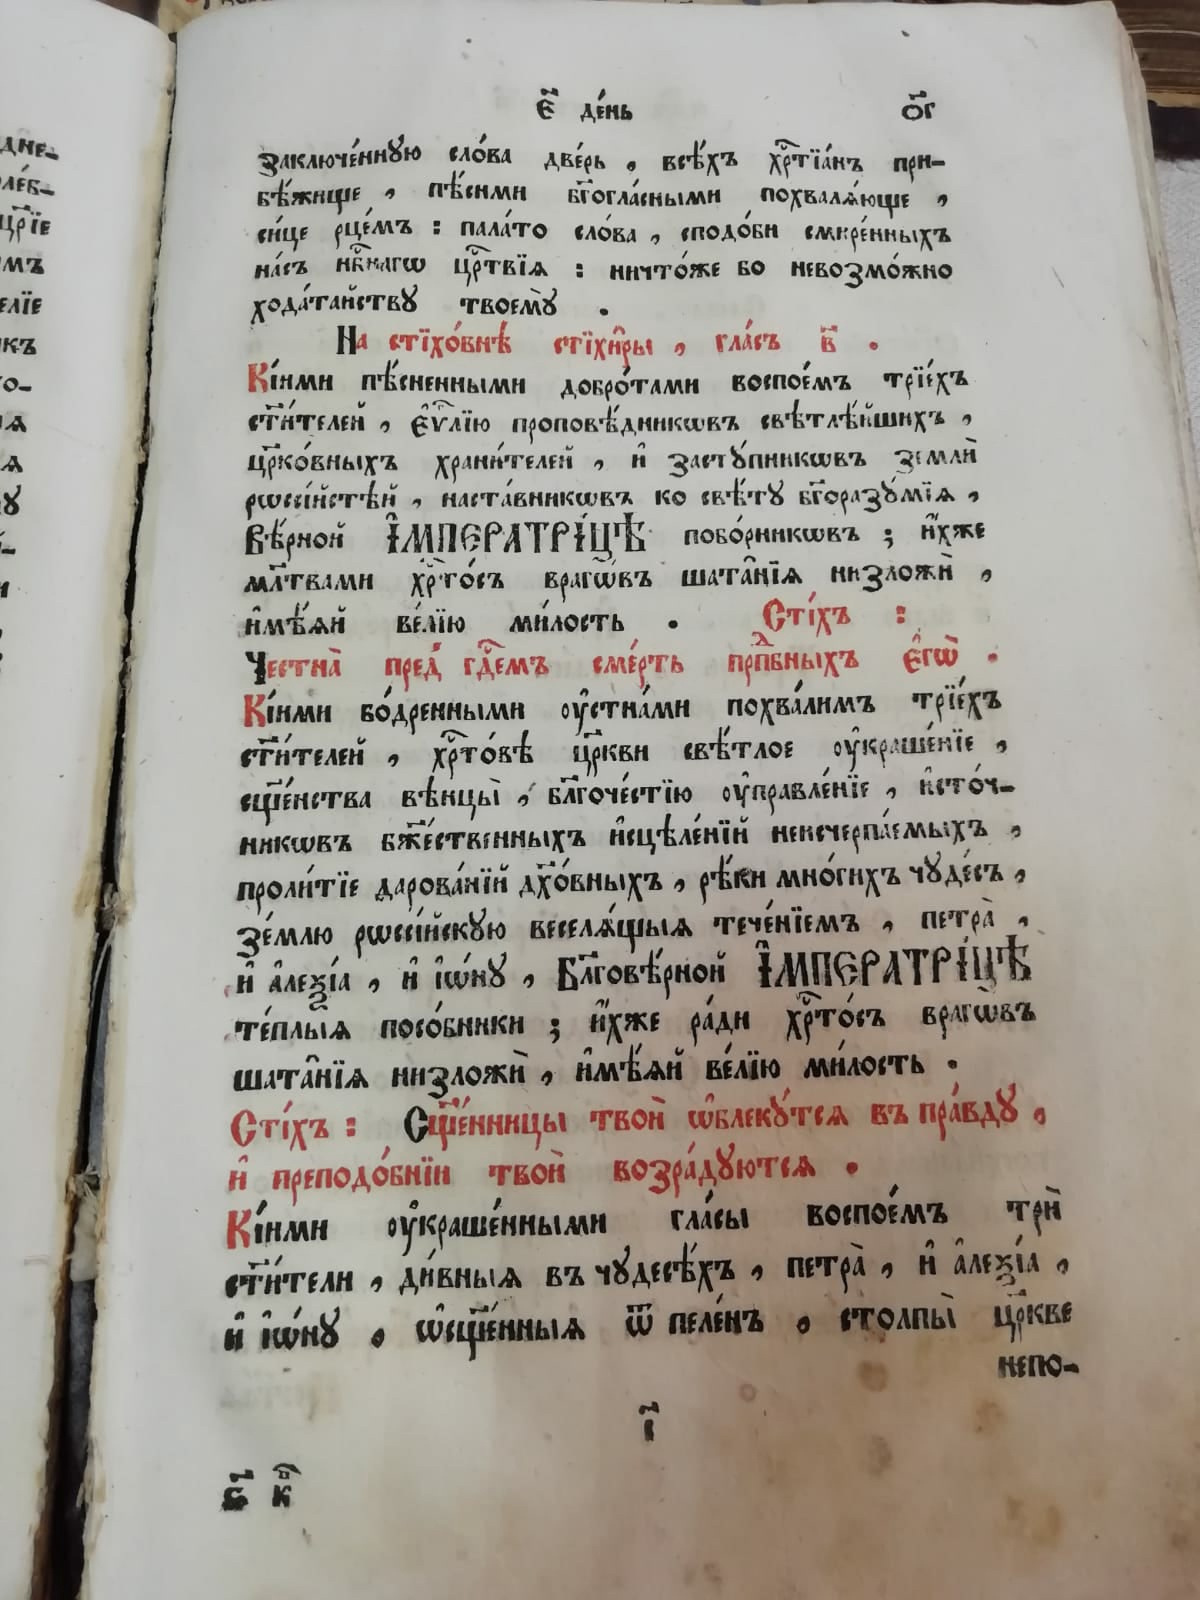 є҃ де́нь ѻ҃г
заключе́нную сло́ва две́рь , всѣ́хъ хрⷭ҇тїа́нъ при-
бѣ́жище , пѣ́сньми бг҃огла́сными похваля́юще ,
си́це рце́мъ : пала́то сло́ва , сподо́би смире́нныхъ
на́съ нбⷭ҇нагѡ црⷭ҇твїѧ : ничто́же бо невозмо́жно
хода́тайству твоемꙋ̀ .
На стїхо́внѣ стїхи̑ры , гла́съ в҃ .
Кі́ими пѣ́сненными добро́тами воспое́мъ трїе́хъ
ст҃и́телей , є҆ѵⷢ҇лїю проповѣ́дникѡвъ свѣтлѣ́йшихъ ,
цр҃ко́вныхъ храни́телей , и҆ засту́пникѡвъ землѝ
рѡссі́йстѣй , наста́вникѡвъ ко свѣ́ту бг҃оразу́мїѧ ,
Вѣ́рной І҆МПЕРАТРІ́ЦѢ побо́рникѡвъ ; и҆́хже
мл҃твами хрⷭ҇то́съ врагѡ́въ шата̑нїѧ низложѝ ,
и҆мѣ́ѧй ве́лїю ми́лость . Сті́хъ :
Честна̀ пред̾ гдⷭ҇емъ сме́рть прпⷣбныхъ є҆гѡ̀ .
Кі́ими бо́дренными оу҆стна́ми похва́лимъ трїе́хъ
ст҃и́телей , хрⷭ҇то́вѣ цр҃кви свѣ́тлое оу҆краше́нїе ,
сщ҃е́нства вѣнцы̀ , бл҃гоче́стїю оу҆правле́нїе , и҆сто́ч-
никѡвъ бж҃е́ственныхъ и҆сцѣле́нїй неисчерпа́емыхъ ,
проли́тїе дарова́нїй дх҃о́вныхъ , рѣ́ки мно́гихъ чуде́съ ,
зе́млю рѡссі́йскую веселѧ́щыѧ тече́нїемъ , петра̀ ,
и҆ а҆леѯі́а , и҆ і҆ѡ́ну , Бл҃говѣ́рной І҆МПЕРАТРІ́ЦѢ
те́плыѧ посо́бники ; и҆́хже ра́ди хрⷭ҇то́съ врагѡ́въ
шата̑нїѧ низложѝ , и҆мѣ́ѧй ве́лїю ми́лость .
Сті́хъ : Сщ҃е́нницы твоѝ ѡ҆блеку́тсѧ въ пра́вду ,
и҆ преподо́бнїи твоѝ возра́дуютсѧ .
Кі́ими оу҆краше́нными гла́сы воспое́мъ трѝ
ст҃и́тели , ди́вныѧ въ чудесѣ́хъ , петра̀ , и҆ а҆леѯі́а ,
и҆ і҆ѡ́ну , ѡ҆сщ҃е́нныѧ ѿ пеле́нъ , столпы̀ цр҃кве
непо-
і҃